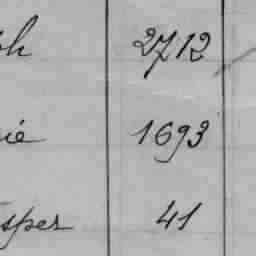 ph 2712
rié 1693
sper 41